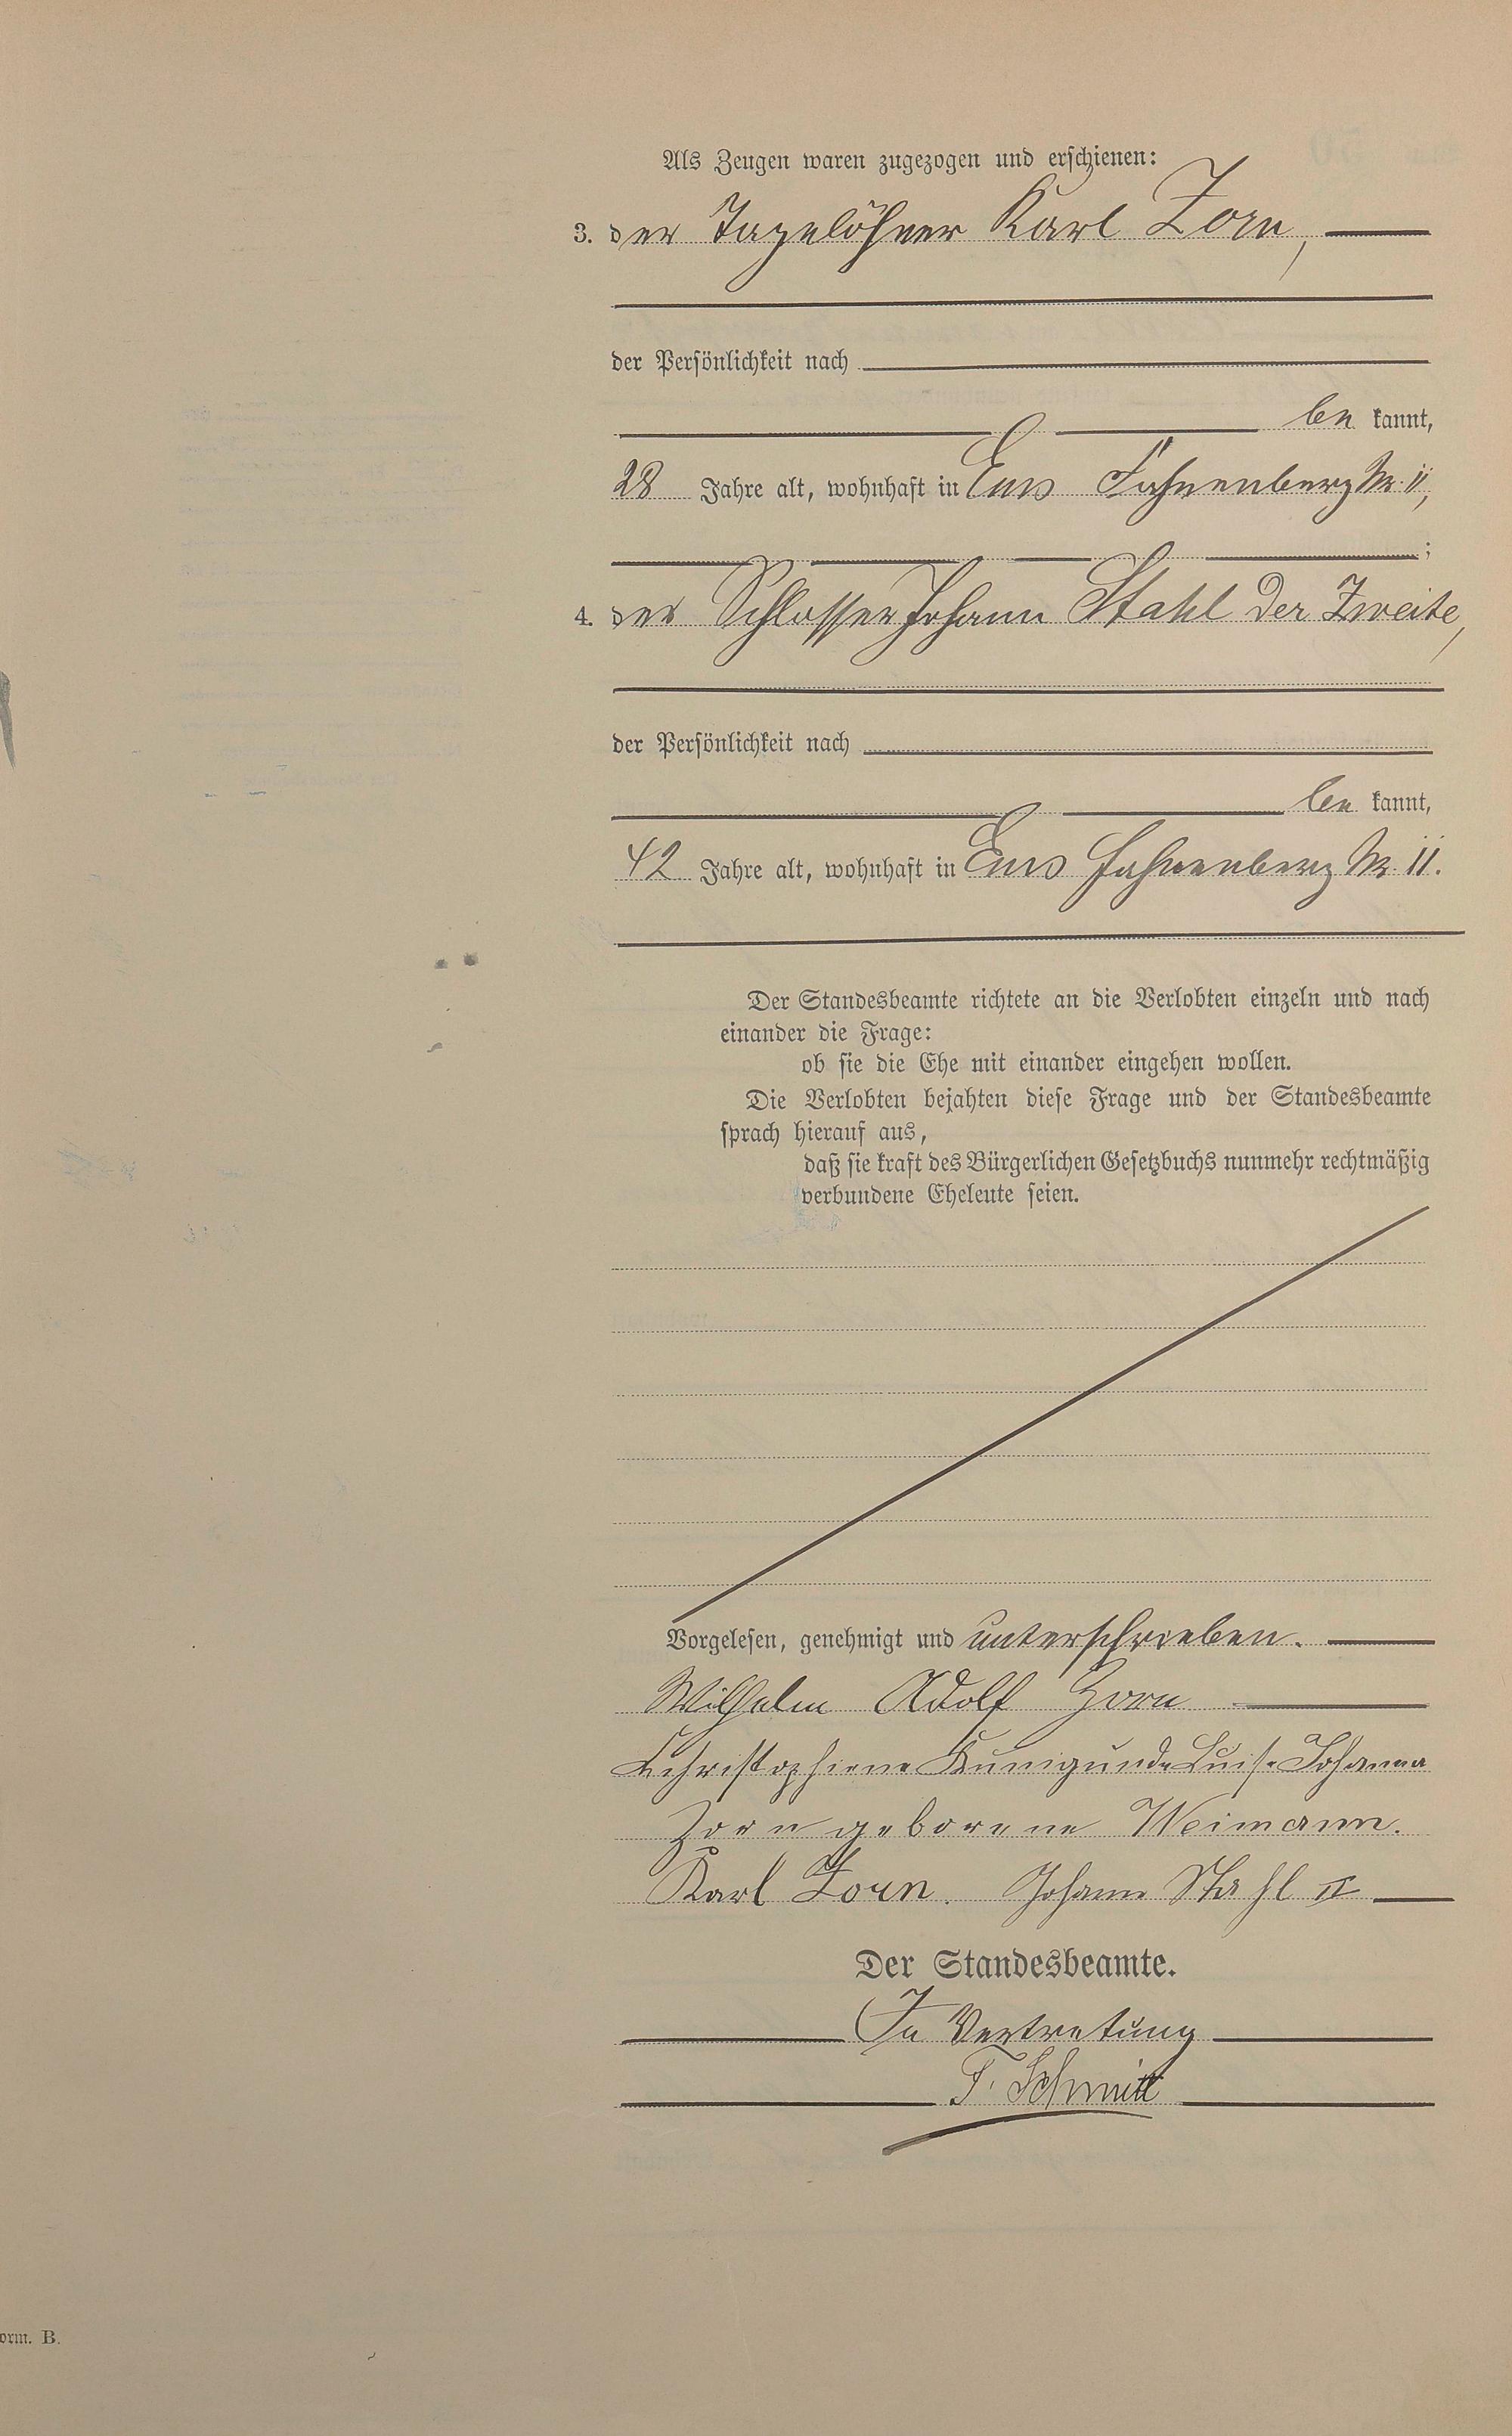 Als Zeugen waren zugezogen und erschienen:
3. der Tagelöhner Karl Zorn,
der Persönlichkeit nach
be kannt,
28 Jahre alt, wohnhaft in Ems Fahnenberg Nr. 11,
;
4. der Schlosser Johann Stahl der Zweite,
der Persönlichkeit nach
be kannt,
42 Jahre alt, wohnhaft in Ems Fahnenberg Nr. 11.
Der Standesbeamte richtete an die Verlobten einzeln und nach
einander die Frage:
ob sie die Ehe mit einander eingehen wollen.
Die Verlobten bejahten diese Frage und der Standesbeamte
sprach hierauf aus,
daß sie kraft des Bürgerlichen Gesetzbuchs nunmehr rechtmäßig
verbundene Eheleute seien.
Vorgelesen, genehmigt und unterschrieben.
Wilhelm Adolf Zorn
Christophiene Kunigunde Luise Johanna
Zorn geborene Weimann.
Karl Zorn. Johann Stahl II
Der Standesbeamte.
In Vertretung
Schmitt
orm. B.